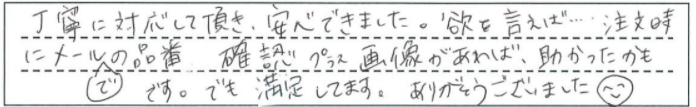 丁寧に対応して頂き、安心できました。欲を言えば… 注文時
にメールでの品番 確認プラス画像があれば、助かったかも
です。でも満足してます。ありがとうございました